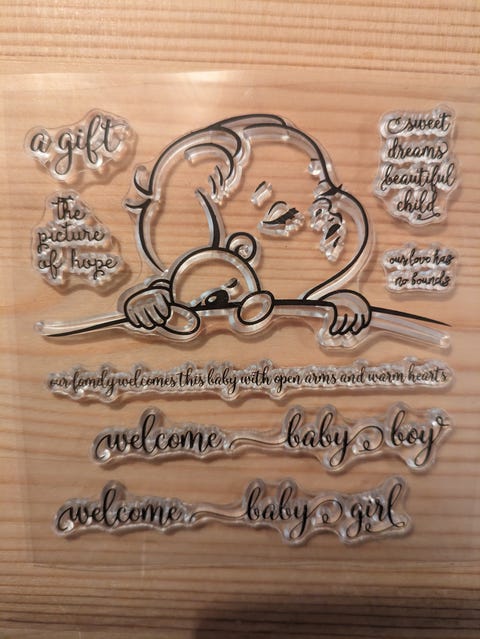 a gift
the
picture
of hope
sweet
dreams
beautiful
child
our love has
no bounds
our family welcomes this baby with open arms and warm hearts
welcome baby boy
welcome baby girl